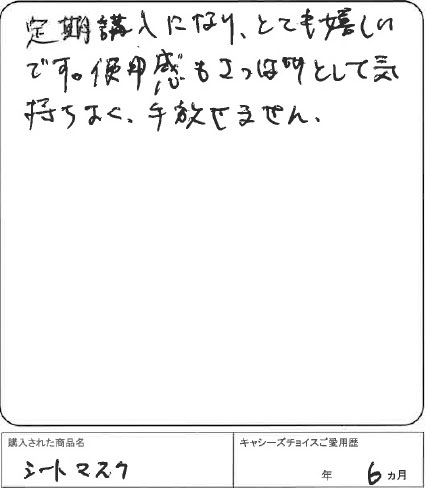 定期購入になり、とても嬉しい
です。使用感もさっぱりとして気
持ちよく、手放せません。
購入された商品名
シートマスク
キャシーズチョイスご愛用歴
年 6 ヵ月